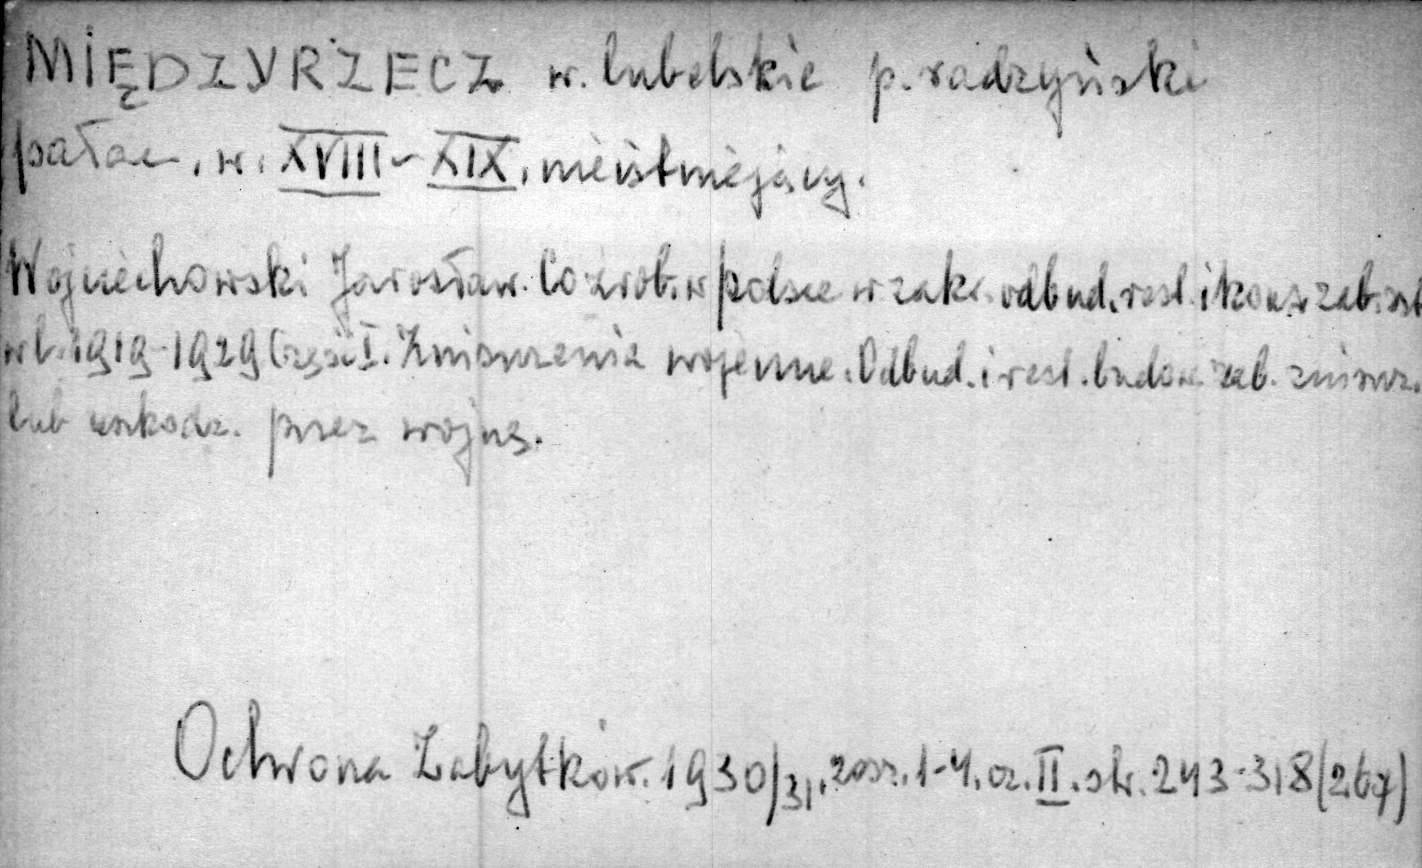 MIĘDZYRZECZ w. lubelskie p. radzyński
pałac, w. XVIII-XIX, nieistniejący.
Wojciechowski Jarosław. Co zrob. w polsce w zakr. odbud. rest. i konserw zab. szt
w l. 1919-1929 Część I. Zniszczenia wojenne. Odbud. i rest. budow. zab. zniszcz.
lub uszkodz. przez wojnę.
Ochrona Zabytków. 1930/31, zesz. 1-4, cz. II. str. 243-318 (267)